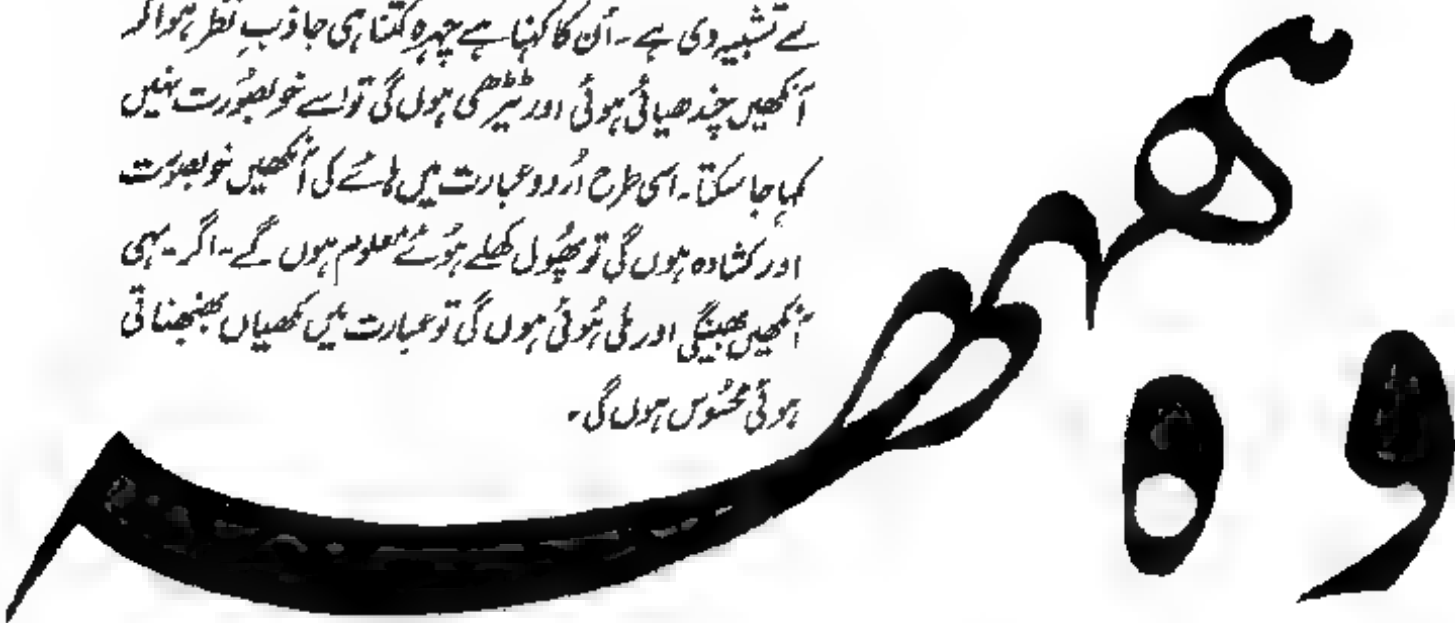 سے تشبیہ دی ہے ۔ اُن کا کہنا ہے چہرہ کتنا ہی جاذبِ نظر ہو اگر
آنکھیں چندھیائی ہوئی اور ٹیڑھی ہوں گی تو اسے خوبصورت نہیں
کہا جا سکتا ۔ اسی طرح اُردو عبارت میں ہائے کی آنکھیں خوبصورت
اور کشادہ ہوں گی تو پھُول کھلے ہُوئے معلوم ہوں گے ۔ اگر یہی
آنکھیں بھینگی اور ملی ہُوئی ہوں گی تو عبارت میں مکھیاں بھنبھناتی
ہوئی محسُوس ہوں گی ۔
و ہ